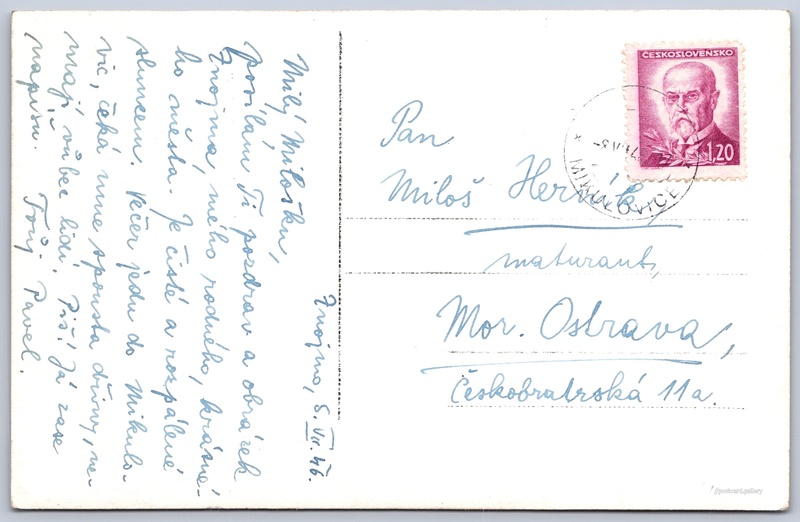 Znojmo, 8. VII. 46.
Milý Milošku,
posílám Ti pozdrav a obrázek
Znojma, mého rodného, krásné-
ho města. Je čisté a rozpálené
sluncem. Večer jedu do Mikulo-
vic, čeká mne spousta dřiny, ne-
mají vůbec lidi. Piš! Já zase
napíšu. Tvůj Pavel.
Pan
Miloš
maturant,
Mor. Ostrava,
Českobratrská 11a.
ČESKOSLOVENSKO
1,20
MIKULOVICE